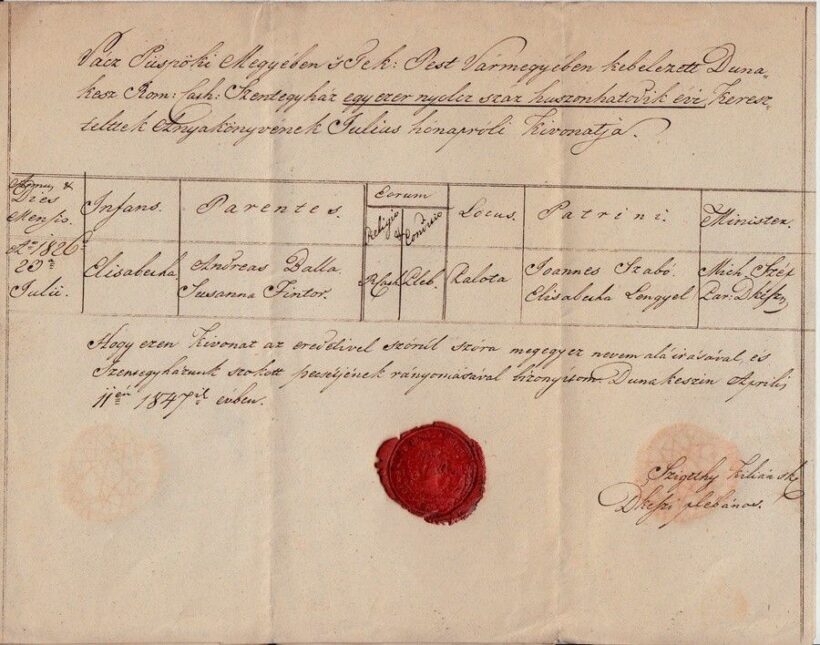 Vácz Püspöki Megyében 's Tek: Pest Vármegyében kebelezett Duna„
kesz Rom: Cath: Szentegyház egy ezer nyolcz száz huszonhatodik évi Keresz„
teltek Annyakönyvének Julius hónapróli Kivonatja.
Annus, &
Dies
Mensis.
Infans.
Parentes.
Eorum
Religio &
Conditio
Locus.
Patrini.
Minister.
Ao 1826
23a
Julii.
Elisabetha
Andreas Dalla.
Susanna Fintor.
R.Cath
Pleb.
Palota
Joannes Szabó.
Elisabetha Lengyel
Mich. Széf
Par: DKeszy
Hogy ezen Kivonat az eredetivel szórul szóra megegyez nevem aláirásával, és
Szentegyházunk szokott pecsétjének rányomásával bizonyítom. Dunakeszin Április
11én 1847ik évben.
Szigethy Kilián mk
DKeszi plébános.